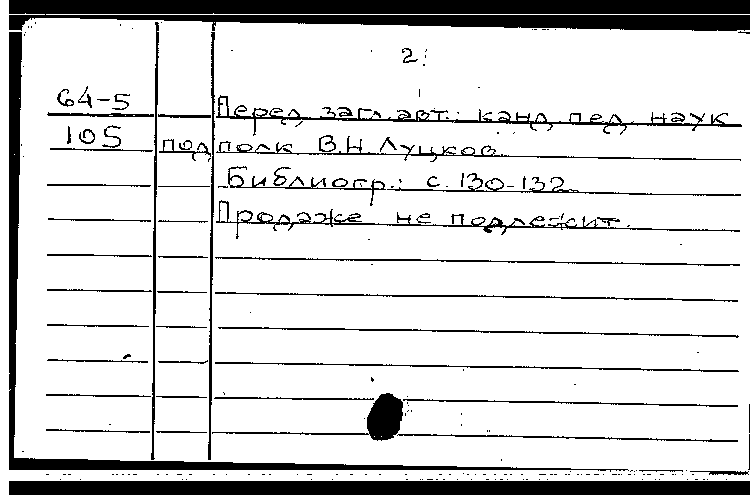 2.
64-5
Перед загл. авт.: канд. пед. наук
105 подполк В.Н. Луцков.
Библиогр.: с. 130-132
Продаже не подлежит.